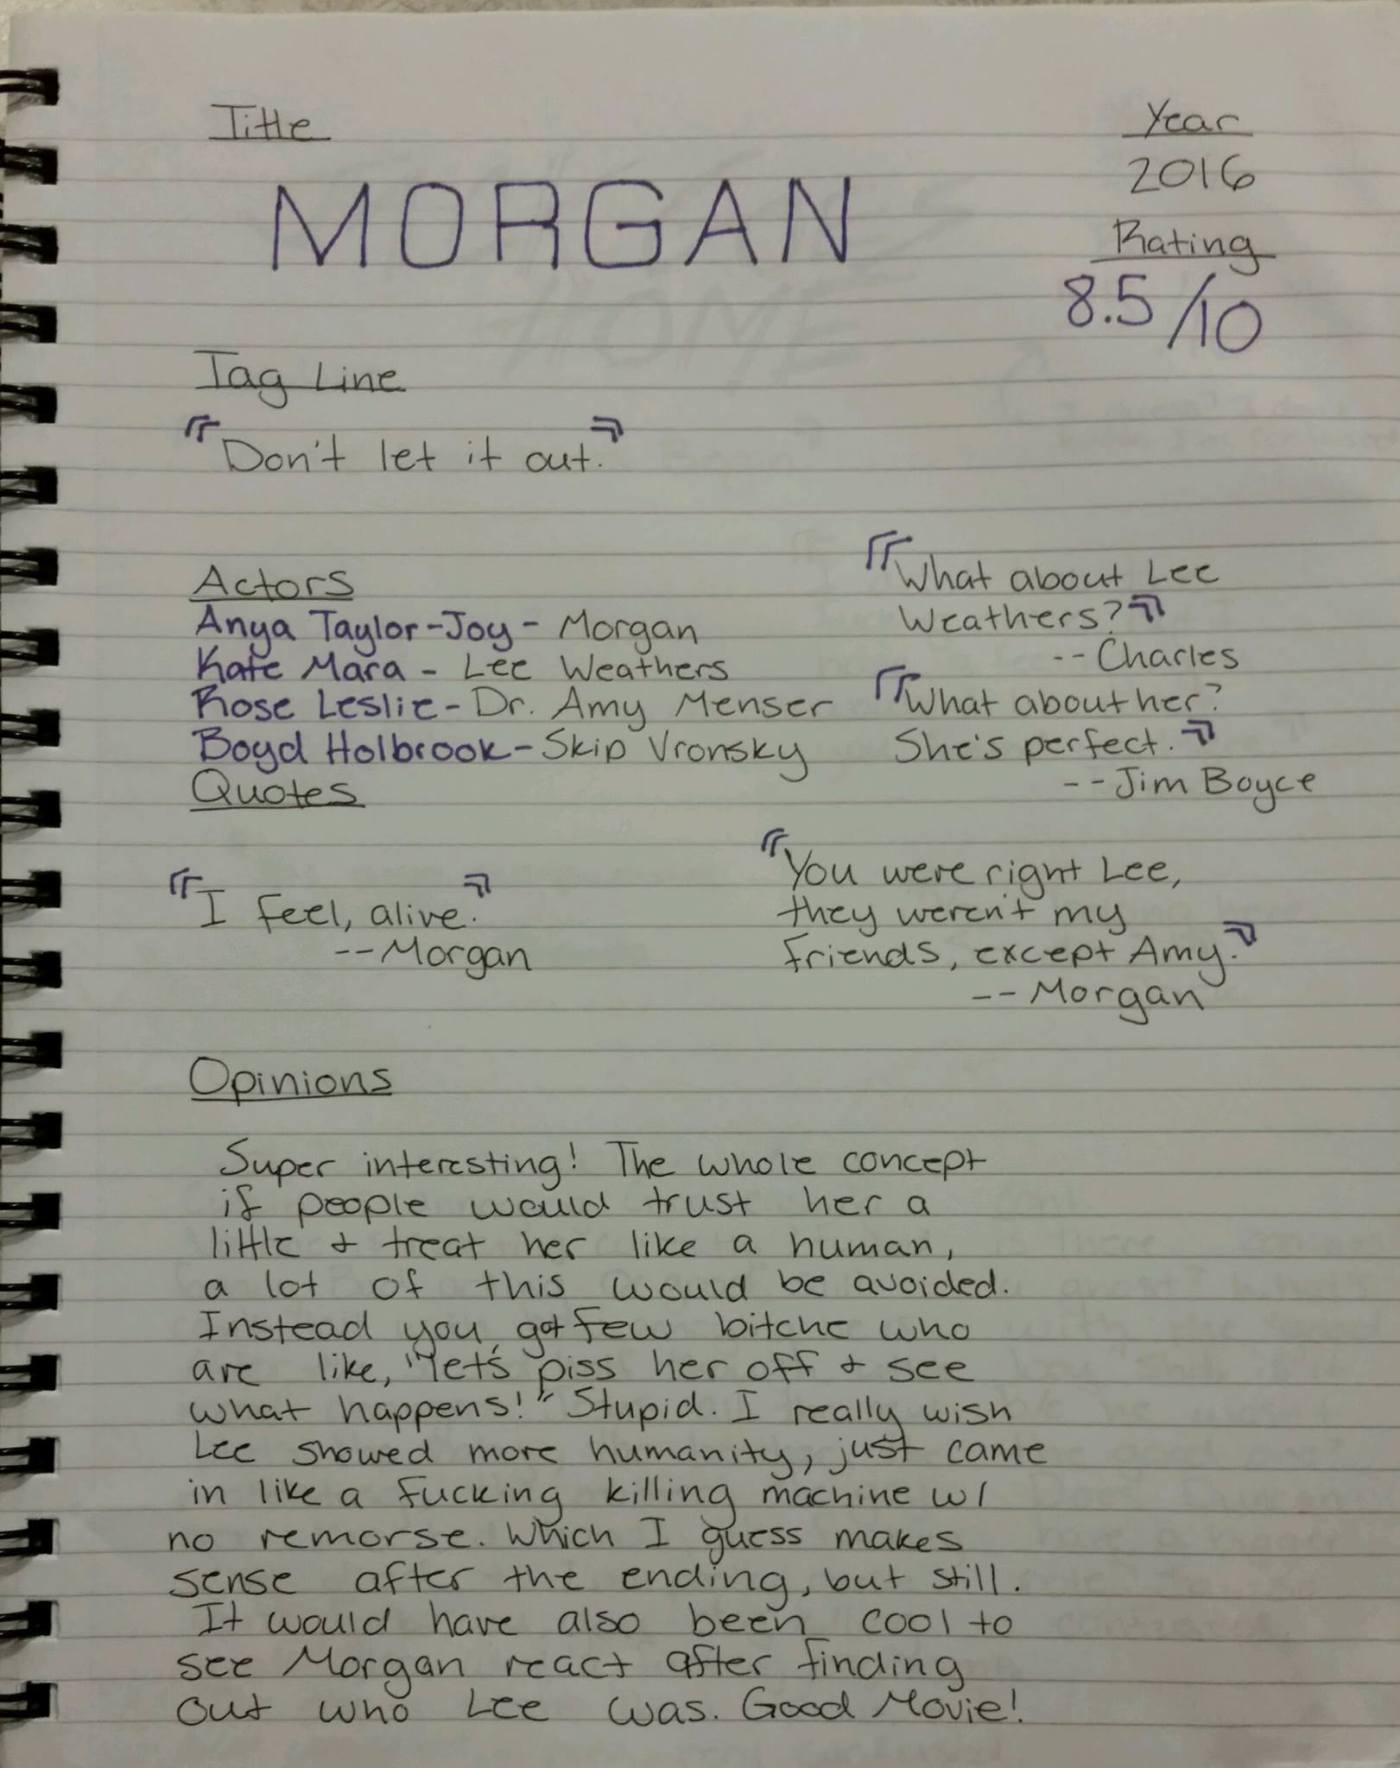 Title
MORGAN
Year
2016
Rating
8.5/10
Tag Line
"Don't let it out."
Actors
Anya Taylor-Joy - Morgan
Kate Mara - Lee Weathers
Rose Leslie - Dr. Amy Menser
Boyd Holbrook - Skip Vronsky
Quotes
"What about Lee
Weathers?"
-- Charles
"What about her?
She's perfect."
-- Jim Boyce
"I feel, alive."
-- Morgan
"You were right Lee,
they weren't my
friends, except Amy."
-- Morgan
Opinions
Super interesting! The whole concept
if people would trust her a
little & treat her like a human,
a lot of this would be avoided.
Instead you got few bitche who
are like, "let's piss her off & see
what happens!" Stupid. I really wish
Lee showed more humanity, just came
in like a fucking killing machine w/
no remorse. Which I guess makes
sense after the ending, but still.
It would have also been cool to
see Morgan react after finding
out who Lee was. Good Movie!